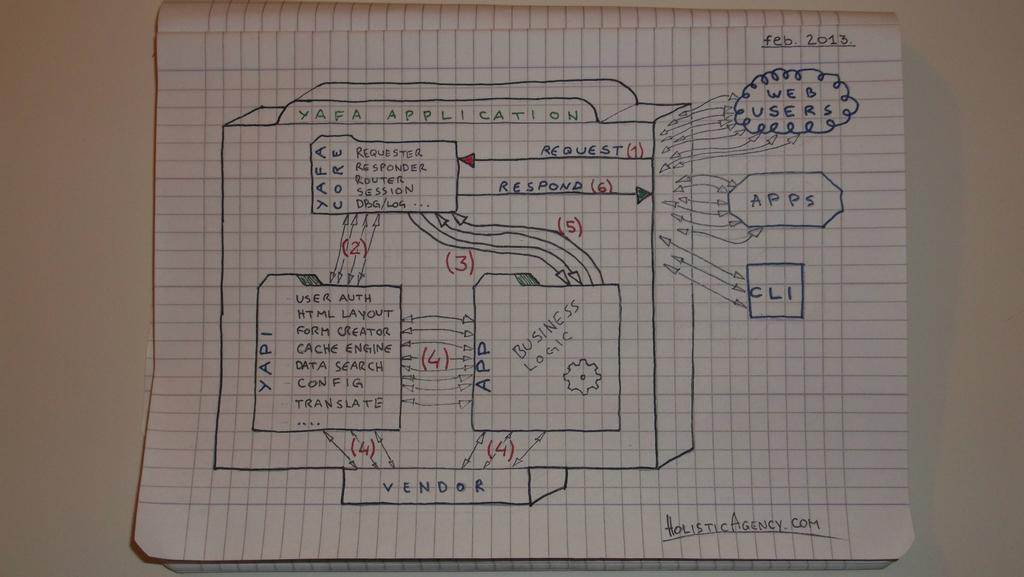 feb. 2013.
WEB
USERS
YAFA APPLICATION
YAFA
CORE
REQUESTER
RESPONDER
ROUTER
SESSION
DBG/LOG ...
REQUEST (1)
RESPOND (6)
APPS
(2)
(3)
(5)
CLI
YAPI
USER AUTH
HTML LAYOUT
FORM CREATOR
CACHE ENGINE
DATA SEARCH
CONFIG
TRANSLATE
....
(4)
APP
BUSINESS
LOGIC
(4)
(4)
VENDOR
HOLISTICAGENCY.COM